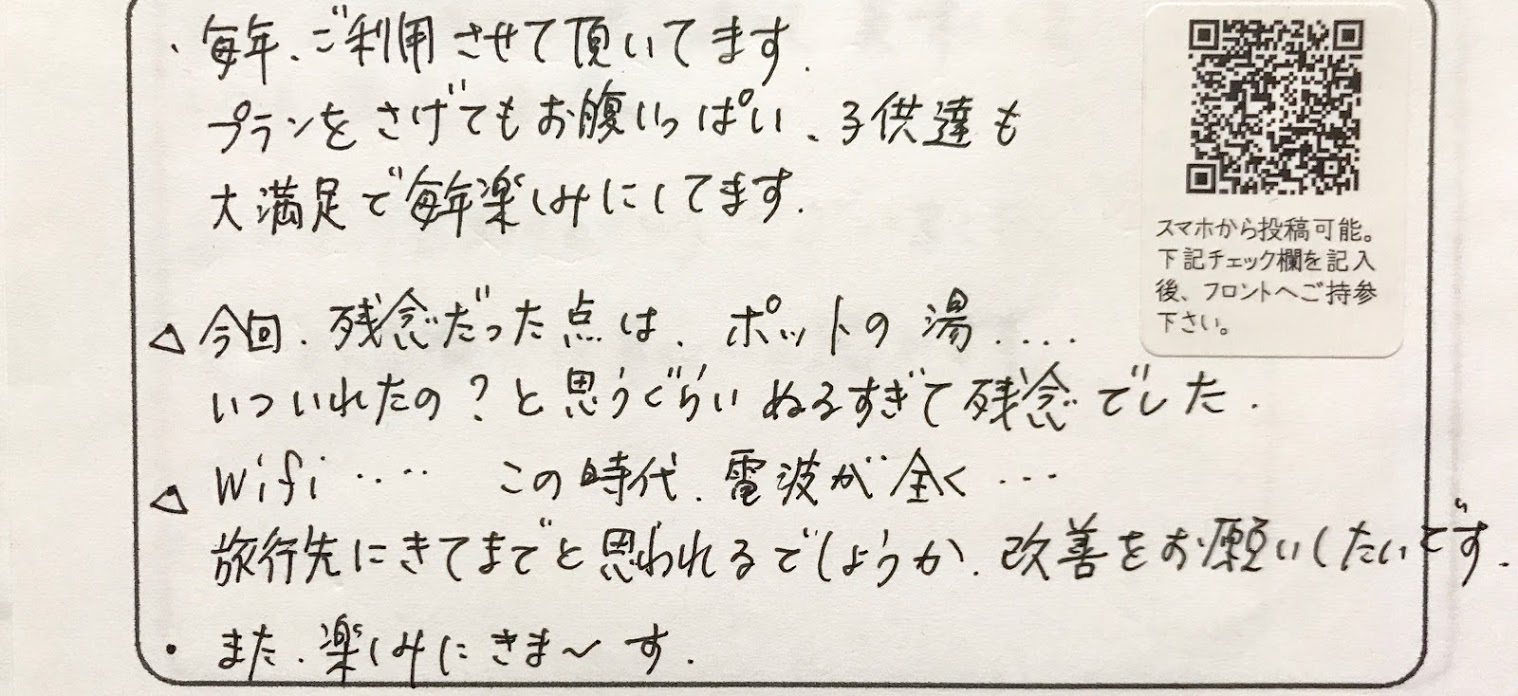 ・毎年、ご利用させて頂いてます.
プランをさげてもお腹いっぱい、子供達も
大満足で毎年楽しみにしてます.
△今回、残念だった点は、ポットの湯....
いついれたの？と思うぐらいぬるすぎて残念でした.
△Wifi.... この時代、電波が全く...
旅行先にきてまでと思われるでしょうか、改善をお願いしたいです.
・また、楽しみにきま〜す.
スマホから投稿可能。
下記チェック欄を記入
後、フロントへご持参
下さい。